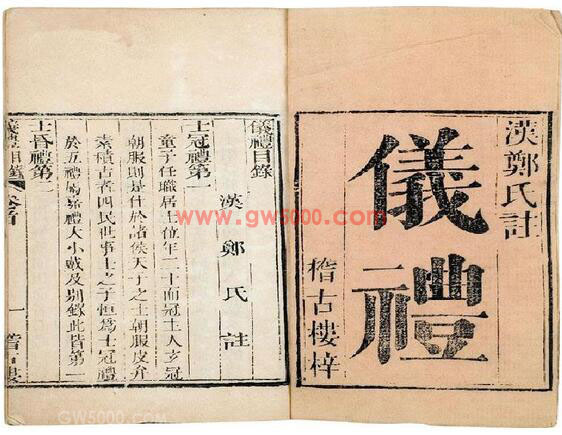 漢鄭氏註
儀禮
稽古樓梓
儀禮目錄
漢鄭氏註
士冠禮第一
童子任職居士位年二十而冠主人玄冠
朝服則是仕於諸侯天子之士朝服皮弁
素積古者四民世事士之子恒爲士冠禮
於五禮屬嘉禮大小戴及別錄此皆第一
士昏禮第二
儀禮目錄
一
稽古樓
www.gw5000.com
GW5000.COM